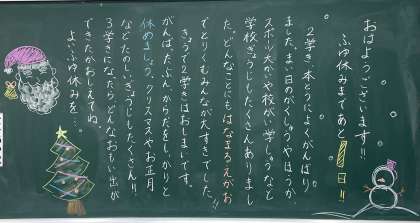 おはようございます!!
ふゆ休みまであと1日!!
2学き、本とうによくがんばり
ました。まい日のがくしゅうやほうか、
スポーツ大かいや校がい学しゅうなど
学校ぎょうじもたくさんありまし
た。どんなことにもはなまるえがお
でとりくむみんなが大すきでした。!!
きょうで2学きはおしまいです。
がんばったぶん、からだをしっかりと
休めましょう。クリスマスやお正月
などたのしいぎょうじもたくさん!!
3学きになったら、どんなおもい出が
できたかおしえてね。
よいふゆ休みを…